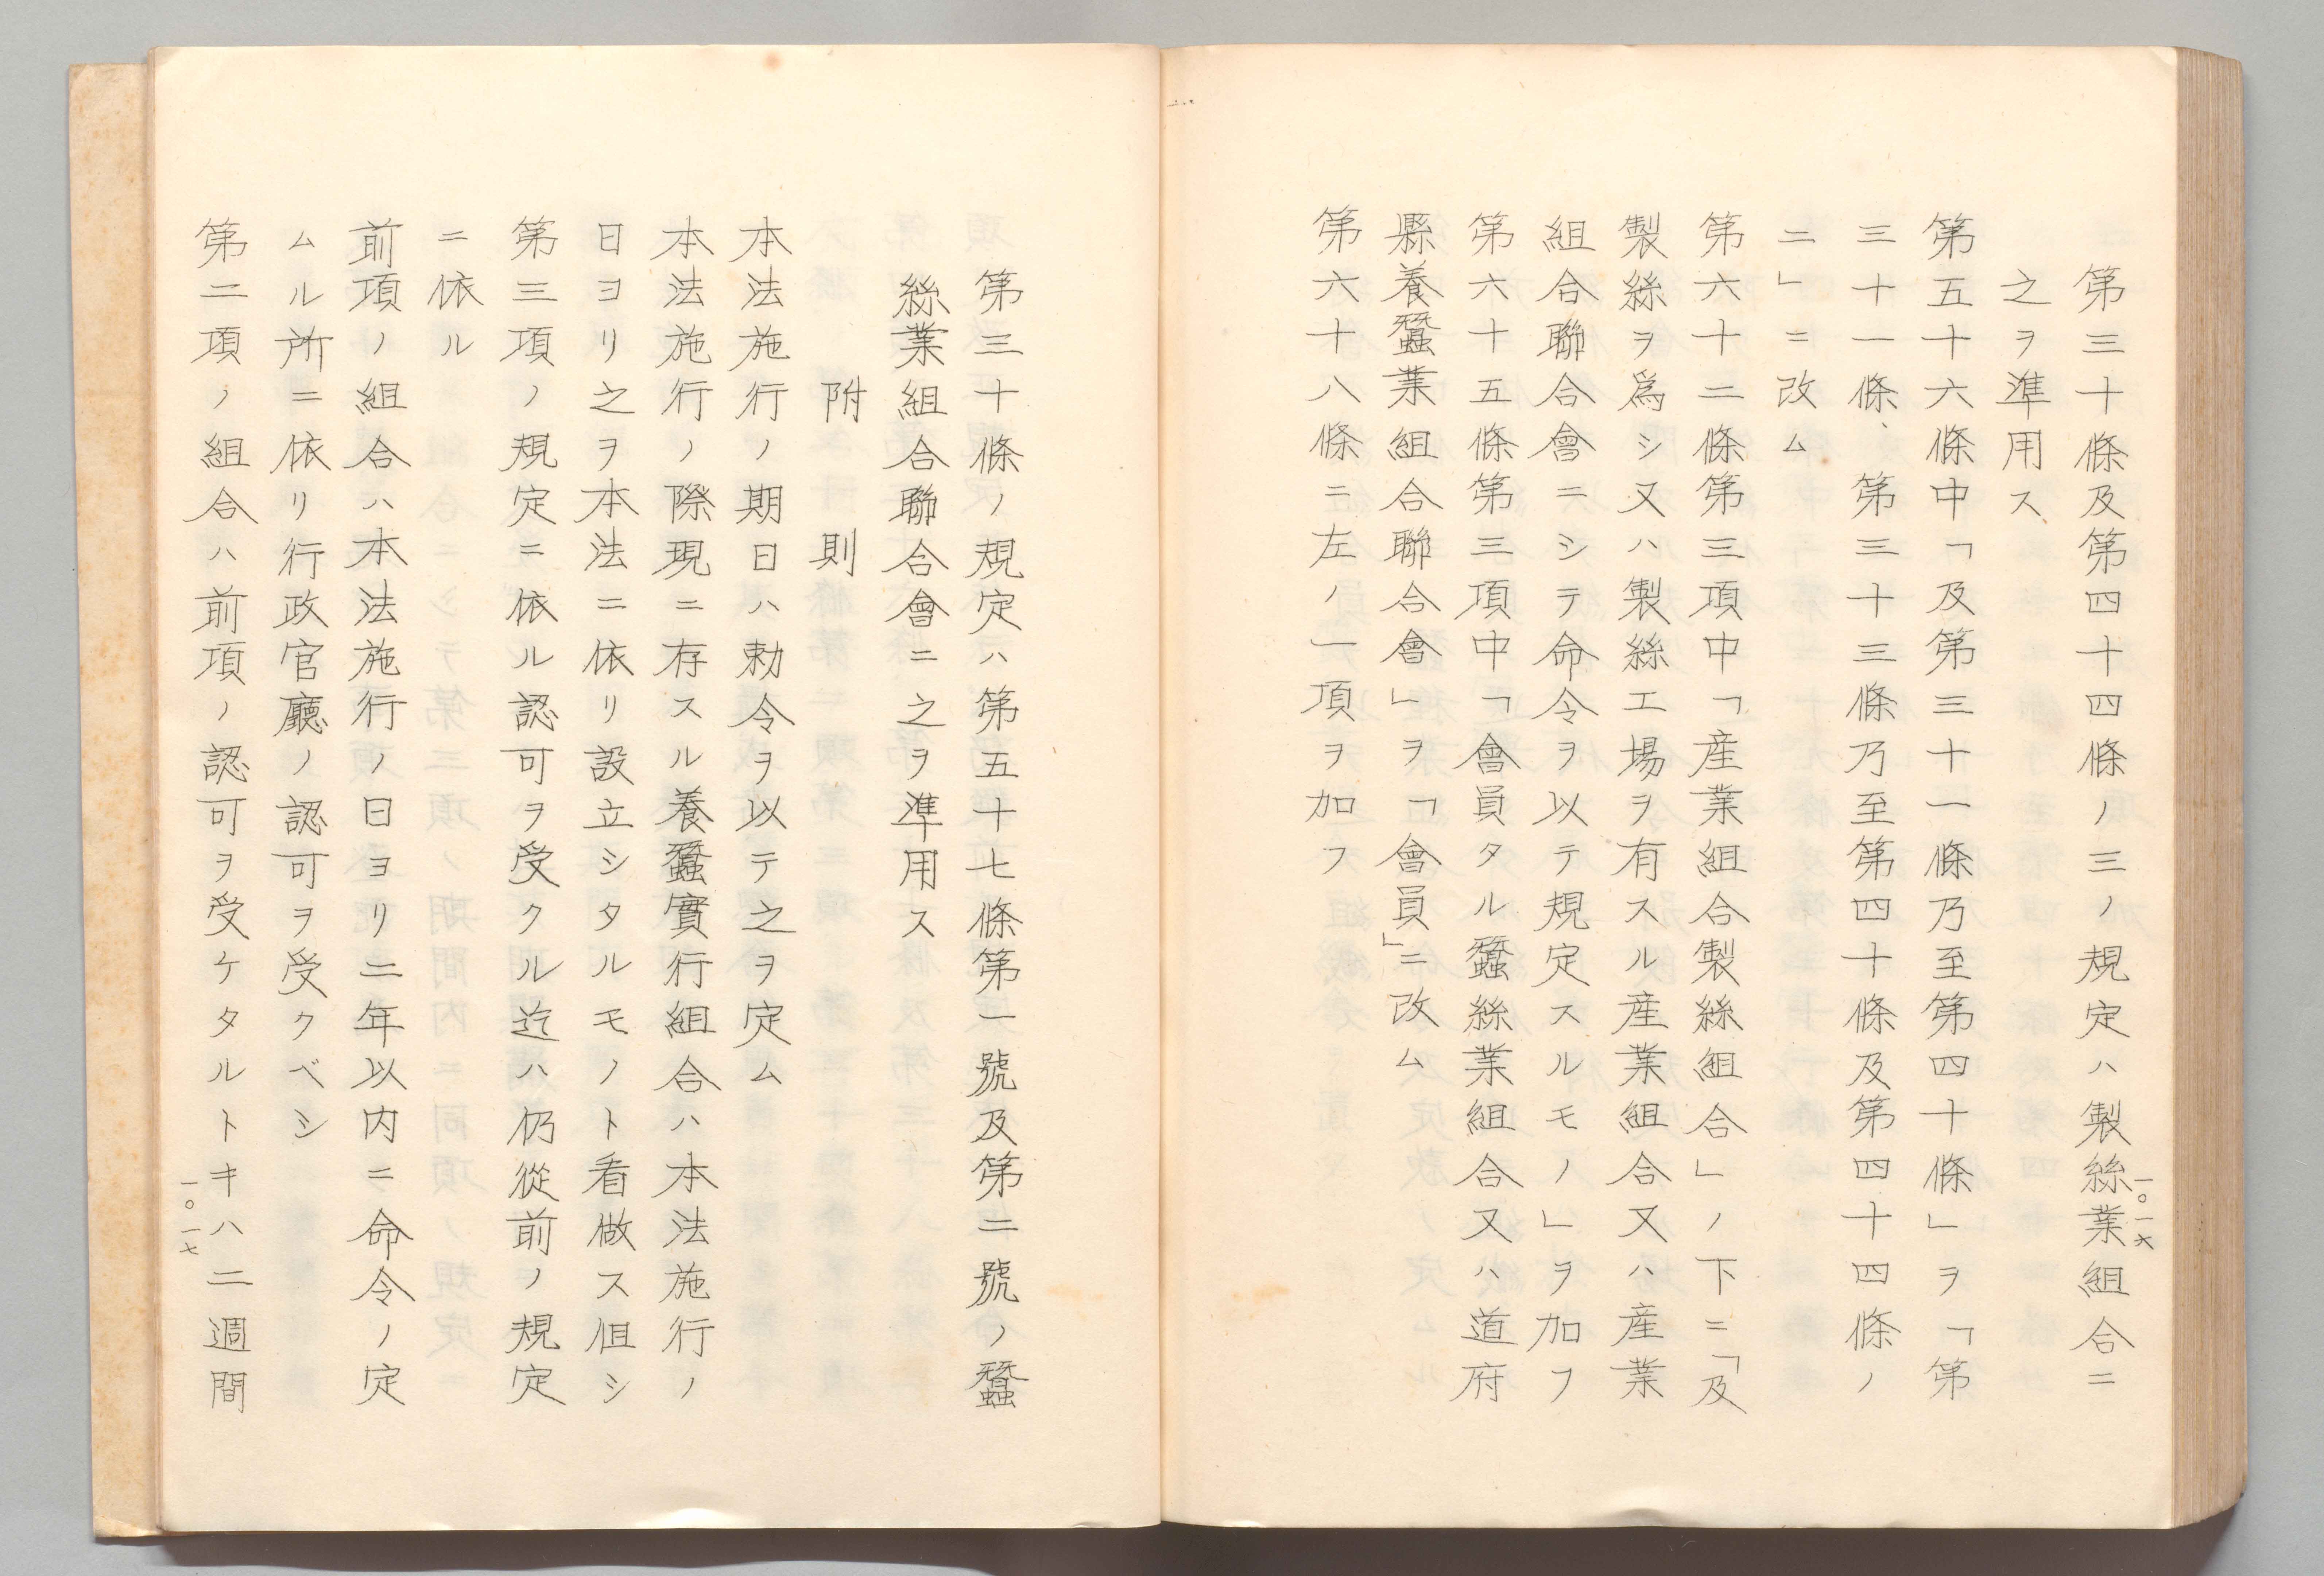 第三十條及第四十四條ノ三ノ規定ハ製絲業組合ニ
之ヲ準用ス
第五十六條中「及第三十一條乃至第四十條」ヲ「第
三十一條、第三十三條乃至第四十條及第四十四條ノ
二」ニ改ム
第六十二條第三項中「産業組合製絲組合」ノ下ニ「及
製絲ヲ爲シ又ハ製絲工場ヲ有スル産業組合又ハ産業
組合聯合會ニシテ命令ヲ以テ規定スルモノ」ヲ加フ
第六十五條第三項中「會員タル蠶絲業組合又ハ道府
縣養蠶業組合聯合會」ヲ「會員」ニ改ム
第六十八條ニ左ノ一項ヲ加フ
一〇一六
第三十條ノ規定ハ第五十七條第一號及第二號ノ蠶
絲業組合聯合會ニ之ヲ準用ス
附則
本法施行ノ期日ハ勅令ヲ以テ之ヲ定ム
本法施行ノ際現ニ存スル養蠶實行組合ハ本法施行ノ
日ヨリ之ヲ本法ニ依リ設立シタルモノト看做ス但シ
第三項ノ規定ニ依ル認可ヲ受クル迄ハ仍從前ノ規定
ニ依ル
前項ノ組合ハ本法施行ノ日ヨリ二年以内ニ命令ノ定
ムル所ニ依リ行政官廳ノ認可ヲ受クベシ
第二項ノ組合ハ前項ノ認可ヲ受ケタルトキハ二週間
一〇一七